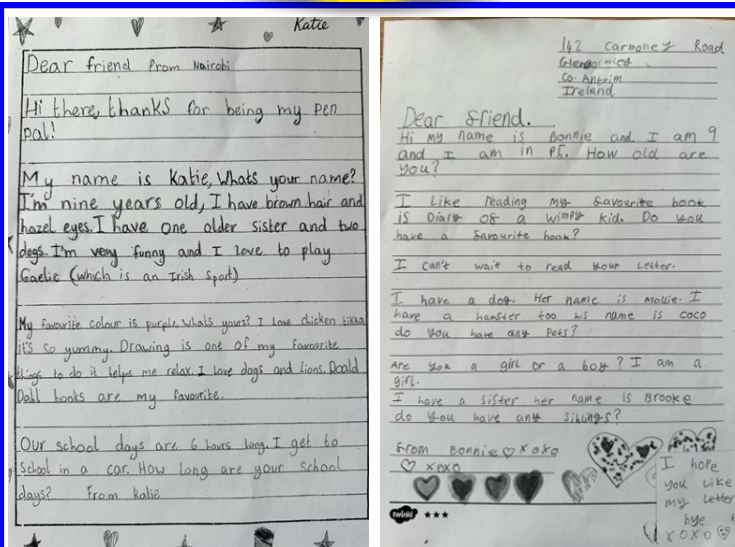 Katie
Dear friend from Nairobi
Hi there, thanks for being my pen
pal!
My name is Katie, Whats your name?
I'm nine years old, I have brown hair and
hazel eyes. I have one older sister and two
dogs. I'm very funny and I love to play
Gaelic (which is an Irish sport)
My favourite colour is purple, whats yours? I love chicken tikka
it's so yummy. Drawing is one of my favourite
things to do it helps me relax. I love dogs and lions. Roald
Dahl books are my favourite.
Our school days are 6 hours long. I get to
school in a car. How long are your school
days? From Katie
142 Carmoney Road
Glengormley
Co. Antrim
Ireland
Dear friend.
Hi my name is Bonnie and I am 9
and I am in P5. How old are
you?
I Like reading my favourite book
is Diary of a wimpy kid. Do you
have a favourite book?
I can't wait to read your letter.
I have a dog. Her name is mollie. I
have a hamster too his name is coco
do you have any pets?
Are you a girl or a boy? I am a
girl.
I have a sister her name is Brooke
do you have any siblings?
from Bonnie ♡ xoxo
♡ xoxo
I hope
you like
my letter
bye
xoxo
twinkl ★★★